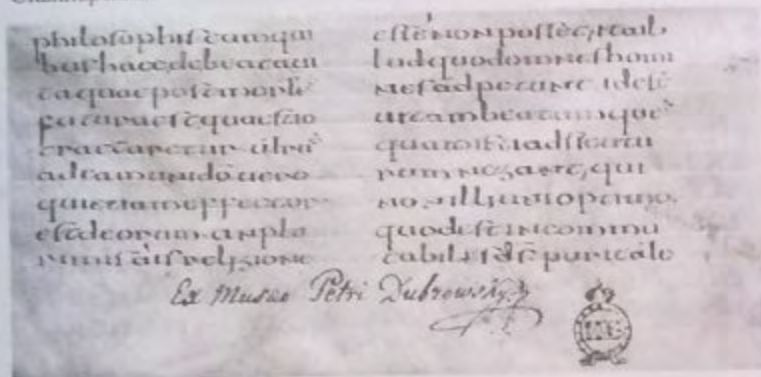 philosophis cum qui
bus haec de beata ui
ta quae post morte
futura est quaestio
tractaretur utru
ad eam uno do uero
qui etiam effector
est deorum an plu
rimis diis religione
esse non posse et ad il
lud quod omnes homi
nes adpetunt id est
uitam beatam que
quam adsecutu
rum negant qui
non illi uni optimo
quod est incommu
tabilis ds puritate
Ex Museo Petri Dubrowsky